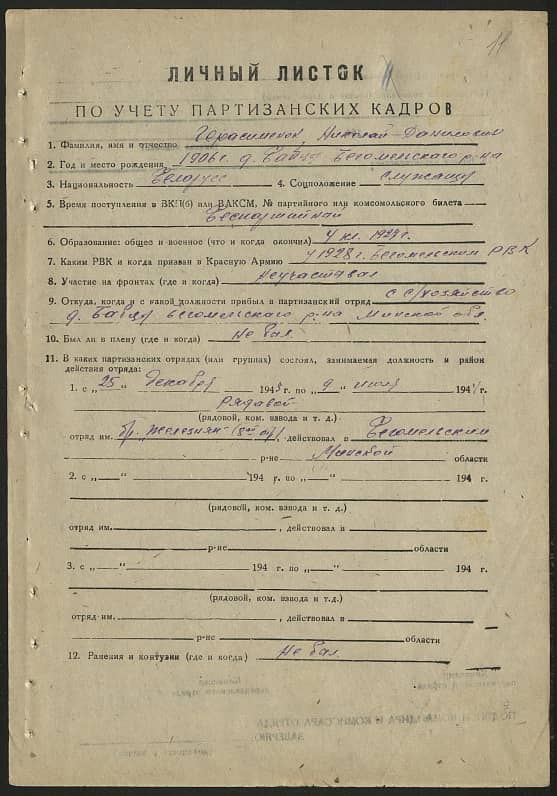 11
ЛИЧНЫЙ ЛИСТОК
ПО УЧЕТУ ПАРТИЗАНСКИХ КАДРОВ
1. Фамилия, имя и отчество Герасименок Николай Данилович
2. Год и место рождения 1906 г. д. Бабцы Бегомльского р-на
3. Национальность Белорусс 4. Соцположение служащ
5. Время поступления в ВКП(б) или ВЛКСМ, № партийного или комсомольского билета
Беспартийной
6. Образование: общее и военное (что и когда окончил) 4 кл. 1924 г.
7. Каким РВК и когда призван в Красную Армию 1928 г. Бегомльским РВК
8. Участие на фронтах (где и когда) Неучаствовал
9. Откуда, когда и с какой должности прибыл в партизанский отряд с с/хозяйство
д. Бабцы Бегомльского р-на Минской обл
10. Был ли в плену (где и когда) Не был
11. В каких партизанских отрядах (или группах) состоял, занимаемая должность и район
действия отряда:
1. с „25“ декабря 194 г. по „9“ июля 194 г.
рядовой
(рядовой, ком. взвода и т. д.)
отряд им. бр. Железняк , действовал в Бегомльским
р-не Минской области
2. с „ “ 194 г. по „ “ 194 г.
(рядовой, ком. взвода и т. д.)
отряд им. , действовал в
р-не области
3. с „ “ 194 г. по „ “ 194 г.
(рядовой, ком. взвода и т.д.)
отряд им. , действовал в
р-не области
12. Ранения и контузии (где и когда) Не был